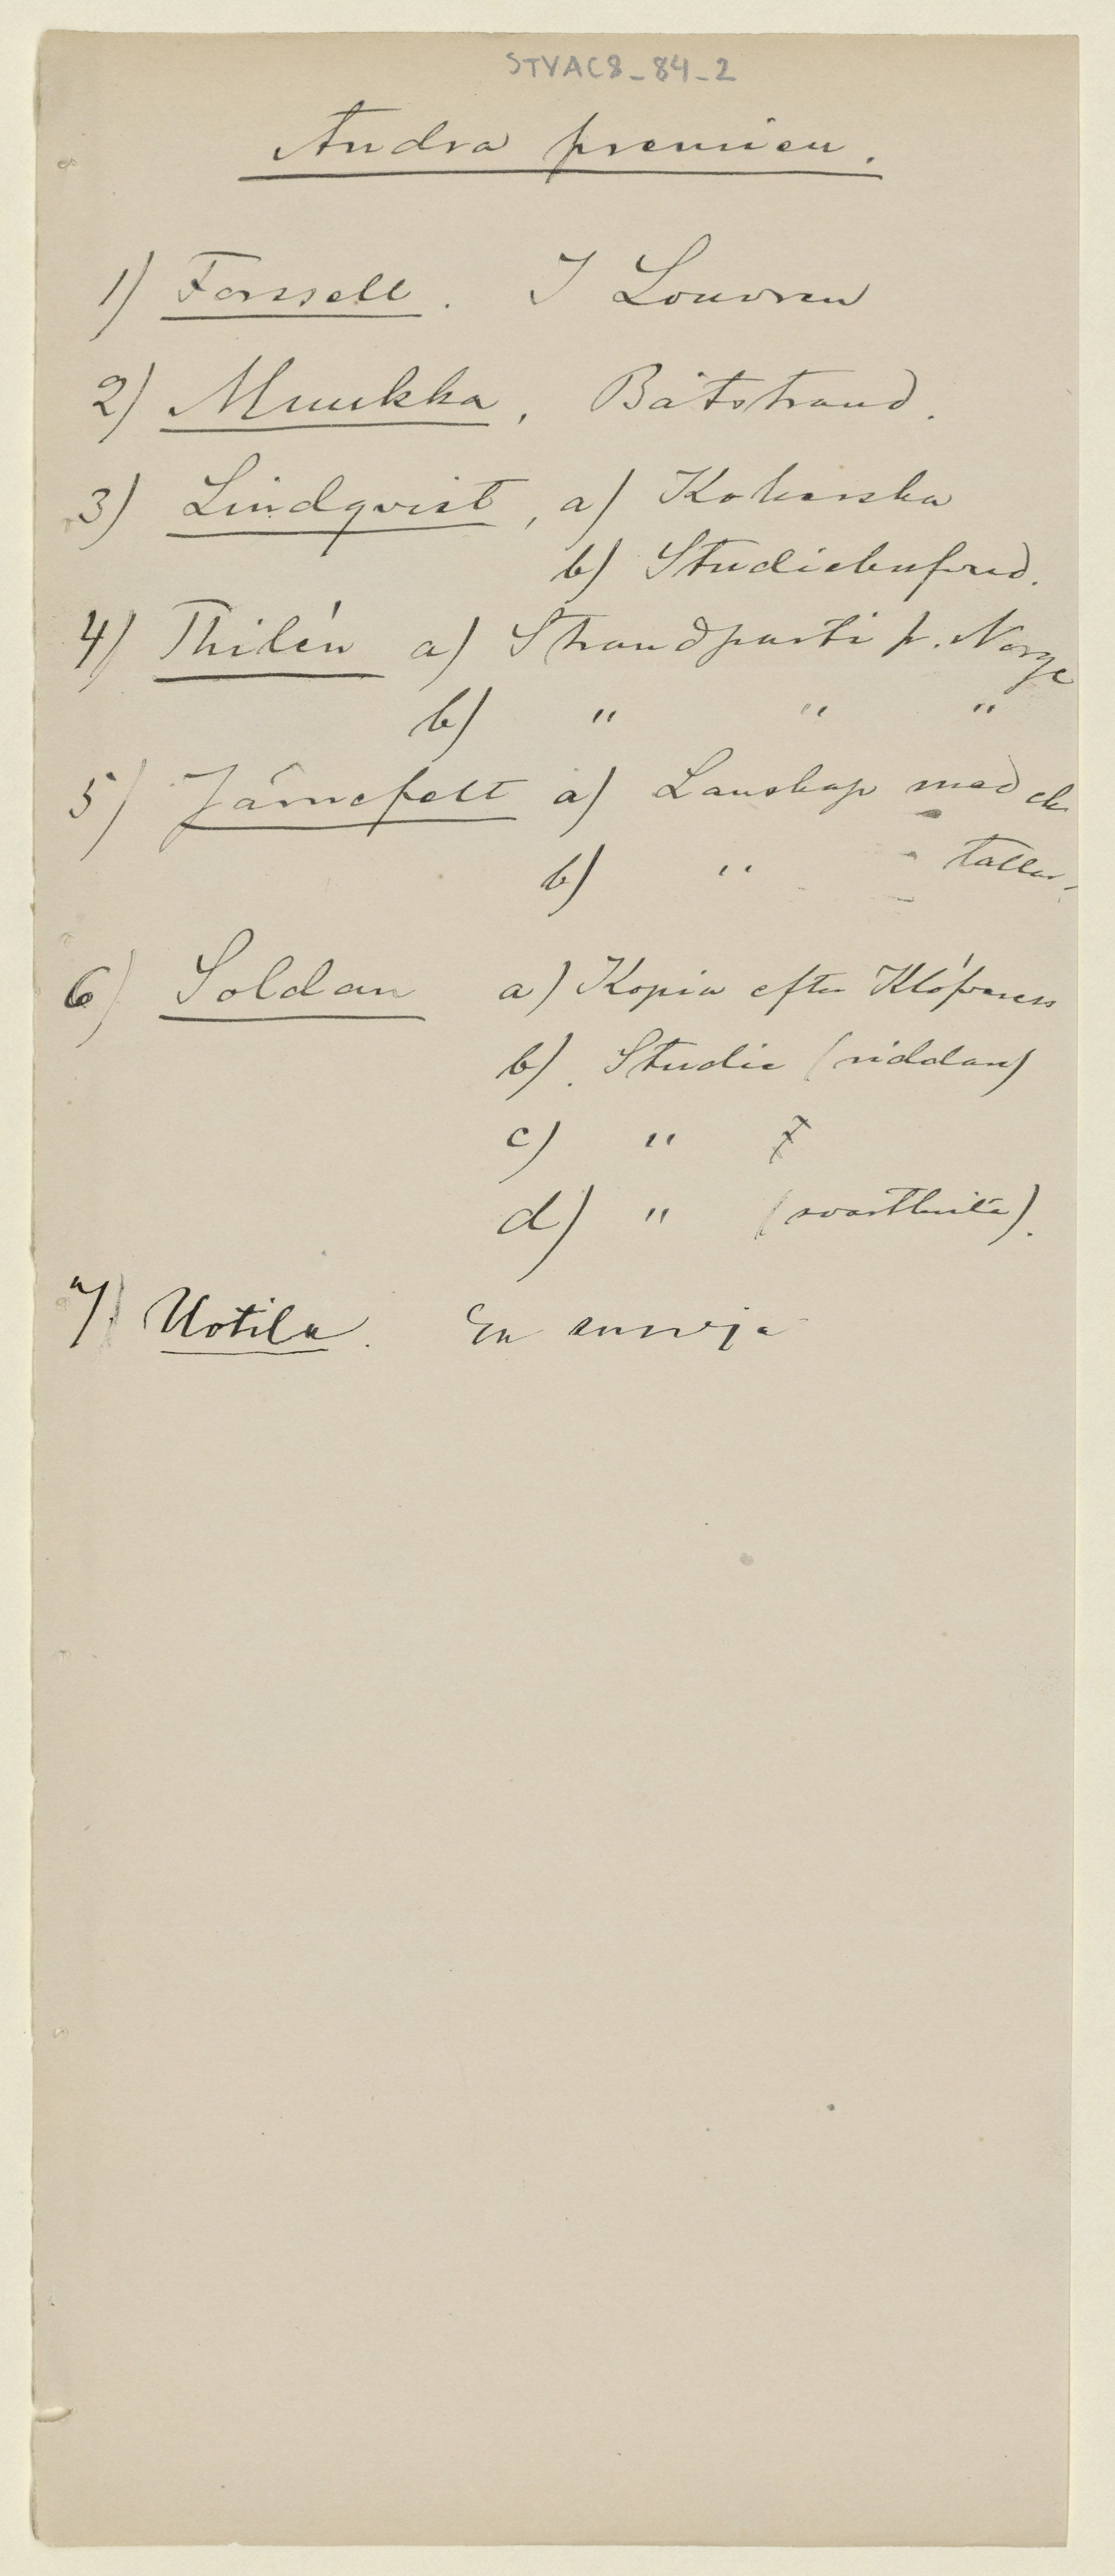 STYAC8_84_2
Andra premien.
1) Forssell. I Louvren
2) Muukka, Båtstrand.
3) Lindqvist, a) Kokerska
b) Studiehufvud.
4) Thilén a) Strandparti fr. Norge
b) " " "
5) Järnefelt a) Lanskap med ek
b) " tallar,
6) Soldan a) Kopia efter
b). Studie (riddare)
c) "
d) " (svarthvita).
7) Uotila. En